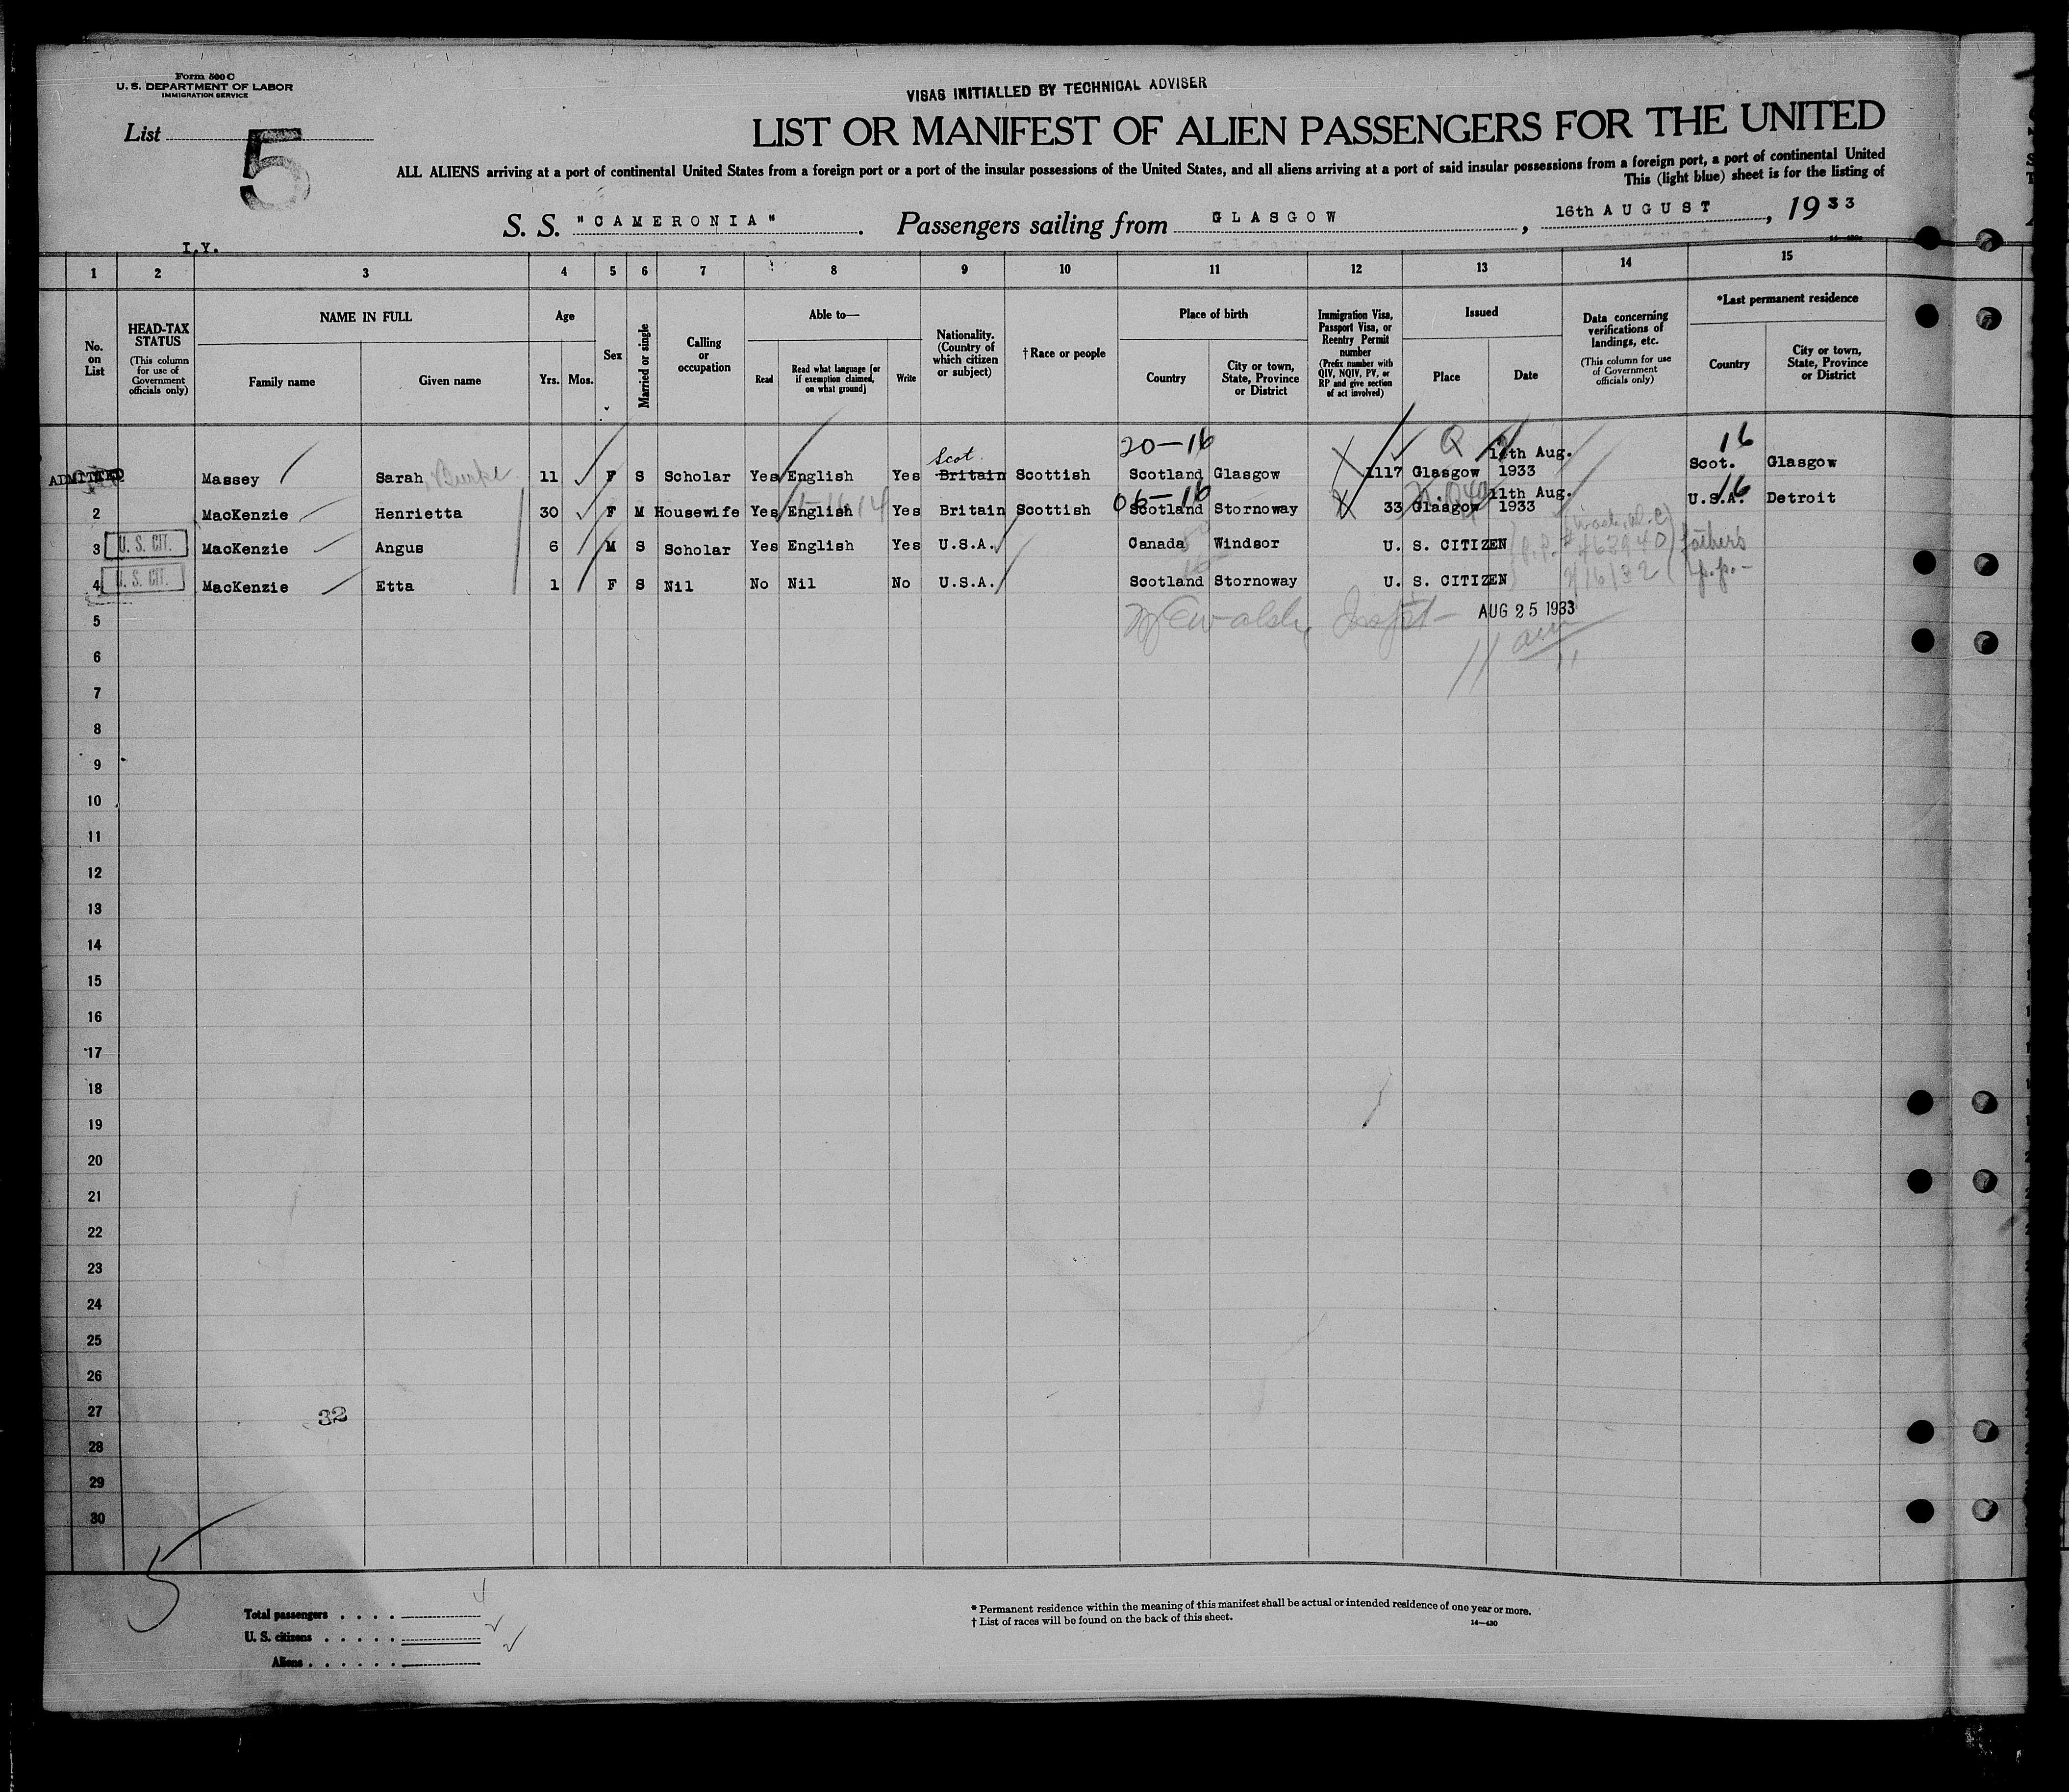 Form 500 C
U. S. DEPARTMENT OF LABOR
IMMIGRATION SERVICE
VISAS INITIALLED BY TECHNICAL ADVISER
List 5
LIST OR MANIFEST OF ALIEN PASSENGERS FOR THE UNITED
ALL ALIENS arriving at a port of continental United States from a foreign port or a port of the insular possessions of the United States, and all aliens arriving at a port of said insular possessions from a foreign port, a port of continental United
This (light blue) sheet is for the listing of
S. S. "CAMERONIA". Passengers sailing from GLASGOW, 16th AUGUST, 1933
I.Y.
1 2 3 4 5 6 7 8 9 10 11 12 13 14 15
No. on List
HEAD-TAX STATUS
(This column for use of Government officials only)
NAME IN FULL
Family name
Given name
Age
Yrs. Mos.
Sex
Married or single
Calling or occupation
Able to—
Read
Read what language [or if exemption claimed, on what ground]
Write
Nationality. (Country of which citizen or subject)
†Race or people
Place of birth
Country
City or town, State, Province or District
Immigration Visa, Passport Visa, or Reentry Permit number
(Prefix number with QIV, NQIV, PV, or RP and give section of act involved)
Issued
Place
Date
Data concerning verifications of landings, etc.
(This column for use of Government officials only)
*Last permanent residence
Country
City or town, State, Province or District
Scot. 20-16 Q 16
ADMITTED Massey Sarah Burke 11 F S Scholar Yes English Yes Britain Scottish Scotland Glasgow 1117 Glasgow 11th Aug. 1933 Scot. Glasgow
06-16 16
2 MacKenzie Henrietta 30 F M Housewife Yes English Yes Britain Scottish Scotland Stornoway 33 Glasgow 11th Aug. 1933 U.S.A. Detroit
3 U. S. CIT. MacKenzie Angus 6 M S Scholar Yes English Yes U.S.A. Canada Windsor U. S. CITIZEN P.P. # 463940 father's
4 U. S. CIT. MacKenzie Etta 1 F S Nil No Nil No U.S.A. Scotland Stornoway U. S. CITIZEN p.p.-
5 AUG 25 1933
11 am
6
7
8
9
10
11
12
13
14
15
16
17
18
19
20
21
22
23
24
25
26
27 32
28
29
30
5
Total passengers . . . . 4
U. S. citizens . . . . . 2
Aliens . . . . . . 2
* Permanent residence within the meaning of this manifest shall be actual or intended residence of one year or more.
† List of races will be found on the back of this sheet.
14—430